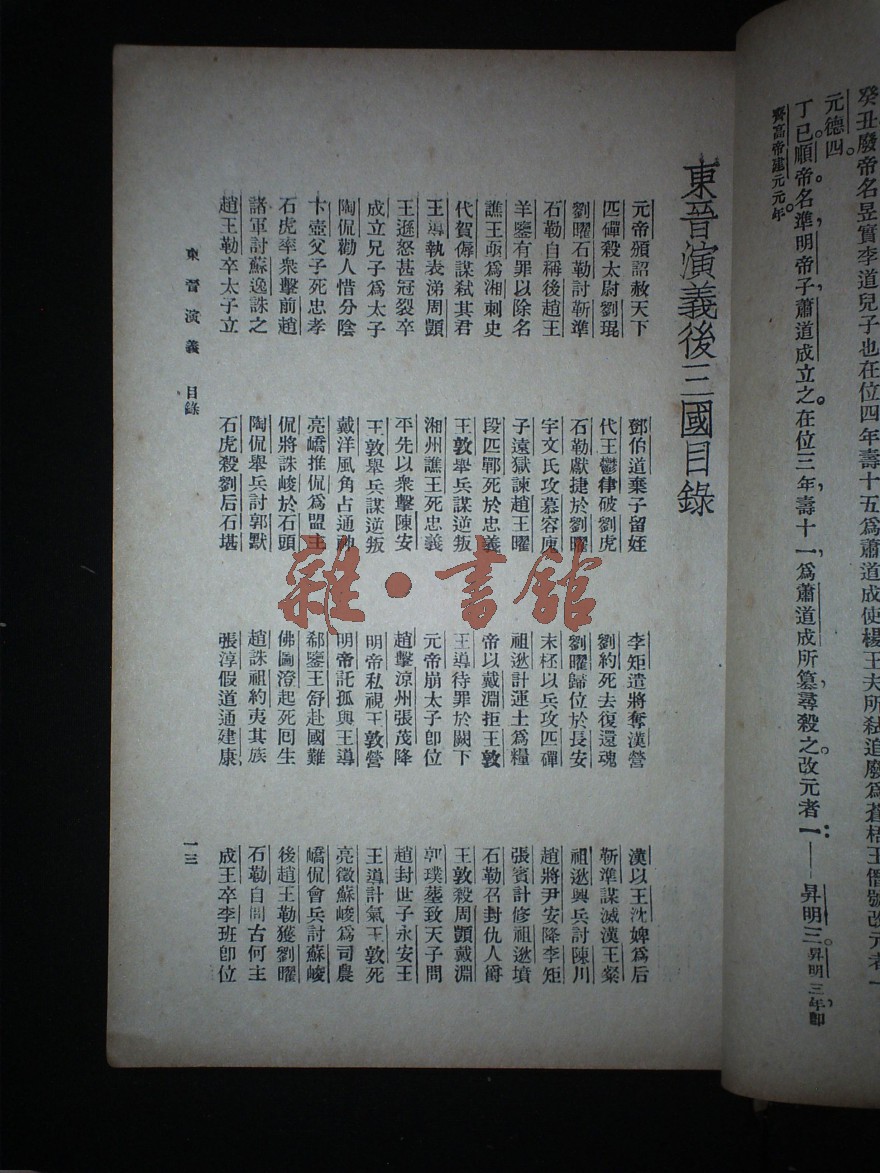 癸丑廢帝名昱實李道兒子也在位四年壽十五爲蕭道成使楊王夫所弑追廢爲蒼梧王僭號改元者一
元德四。
丁巳順帝名準，明帝子蕭道成立之。在位三年，壽十一，爲蕭道成所簒，尋殺之。改元者一：——昇明三。昇明三年，卽
齊高帝建元元年。
東晉演義後三國目錄
元帝頒詔赦天下　鄧伯道棄子留姪　李矩遣將奪漢營　漢以王沈婢爲后
匹磾殺太尉劉琨　代王鬱律破劉虎　劉約死去復還魂　靳準謀滅漢王粲
劉曜石勒討靳準　石勒獻捷於劉曜　劉曜歸位於長安　祖逖興兵討陳川
石勒自稱後趙王　宇文氏攻慕容廆　末柸以兵攻匹磾　趙將尹安降李矩
羊鑒有罪以除名　子遠獄諫趙王曜　祖逖計運土爲糧　張賓計修祖逖墳
譙王氶爲湘刺史　段匹鄲死於忠義　帝以戴淵拒王敦　石勒召封仇人爵
代賀傉謀弑其君　王敦舉兵謀逆叛　王導待罪於闕下　王敦殺周顗戴淵
王導執表涕周顗　湘州譙王死忠義　元帝崩太子卽位　郭璞塟致天子問
王遜怒甚冠裂卒　平先以衆擊陳安　趙擊涼州張茂降　趙封世子永安王
成立兄子爲太子　王敦舉兵謀逆叛　明帝私視王敦營　王導計氣王敦死
陶侃勸人惜分陰　戴洋風角占通神　明帝託孤與王導　亮徵蘇峻爲司農
卞壼父子死忠孝　亮嶠推侃爲盟主　郗鑒王舒赴國難　嶠侃會兵討蘇峻
石虎率衆擊前趙　侃將誅峻於石頭　佛圖澄起死回生　後趙王勒獲劉曜
諸軍討蘇逸誅之　陶侃舉兵討郭默　趙誅祖約夷其族　石勒自問古何主
趙王勒卒太子立　石虎殺劉后石堪　張淳假道通建康　成王卒李班卽位
東晉演義　目錄　一三
雜·書館